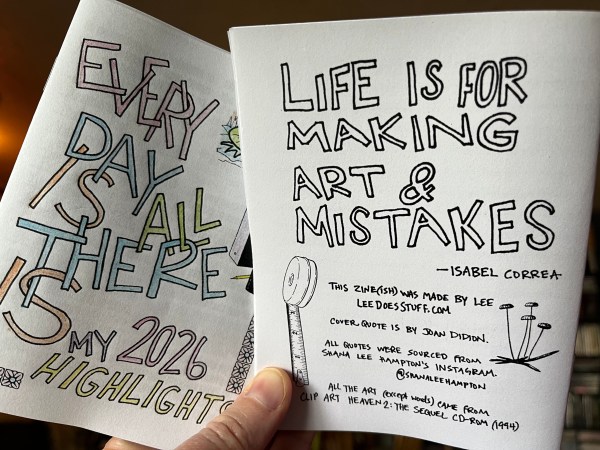 EVERY
DAY
IS ALL
THERE
IS
MY 2026
HIGHLIGHTS
LIFE IS FOR
MAKING
ART &
MISTAKES
—ISABEL CORREA
THIS ZINE(ISH) WAS MADE BY LEE
LEEDOESSTUFF.COM
COVER QUOTE IS BY JOAN DIDION.
ALL QUOTES WERE SOURCED FROM
SHANA LEE HAMPTON'S INSTAGRAM.
@SHANALEEHAMPTON
ALL THE ART (EXCEPT WORDS) CAME FROM
CLIP ART HEAVEN 2: THE SEQUEL CD-ROM (1994)